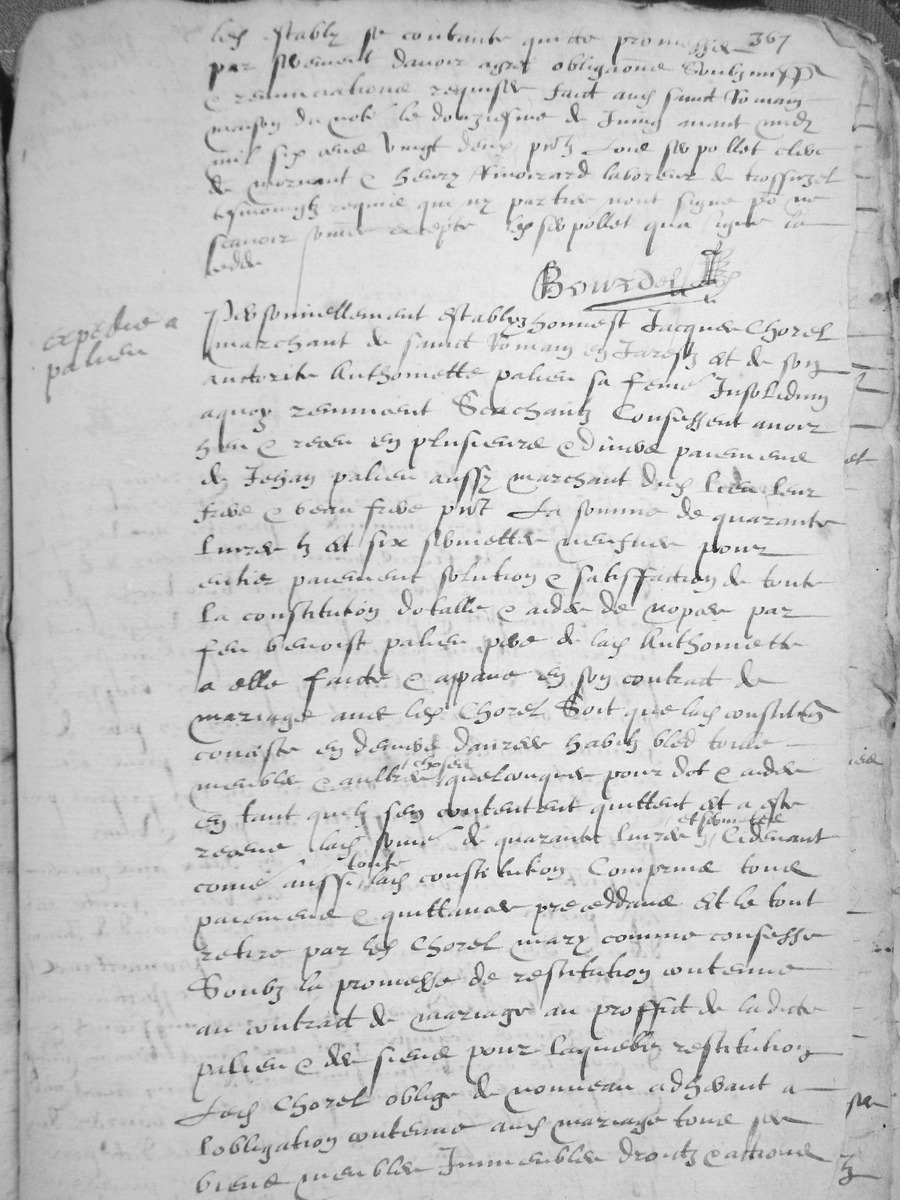 led establz se contante quitte promesse 367
par serment davoir agreé obligaonē soubzmiss
& renunciations requise faict aud sainct Romain
maison du noē le douziesme de Juing avant midy
mil six cens vingt deux pntz Loys pollet clerc
de mornant & henry laboreur de
tesmoingtz requis qui ny parties nont signe po ne
scavoir excepte led pollet qua signe la
cedde
Bourdel
expedie a
palieu
Personnellement establyz honnest Jacques Chorel
marchant de sainct Romain en Jarestz et de son
auctorite Anthoinette palieu sa feme Insolidum
a quoy renuncent Seachantz Confessent avoir
heu & receu en plusieurs & divers paiemens
de Jehan palieu aussy marchant dud lieu leur
frere & beau frere pnt La somme de quarante
livres tz et six sommettes pour
entier paiement solution & satisffaction de toute
la constitution dotalle & aides de nopces par
feu benoist palieu pere de lad Anthoinette
a elle faicte & appane en son contract de
mariage avec led Chorel Soit que lad constitution
consiste en deniers danrees habitz bled toille
meubles & aultres choses quelconques pour dot & aides
en tant quilz sen contentent quittent et a este
receue lad some de quarante livres tz et sommettes Cidevant
come aussi toute lad constitution Comprins tous
paiemens & quittances preceddans et le tout
retire par led Chorel mary comme confesse
Soubz la promesse de restitution contenue
au contract de mariage au proffict de ladicte
palieu & des siens pour laquelle restitution
Led Chorel oblige de nouveau adherant a
lobligation contenue aud mariage tous ses
biens meubles Immeubles droictz & actions